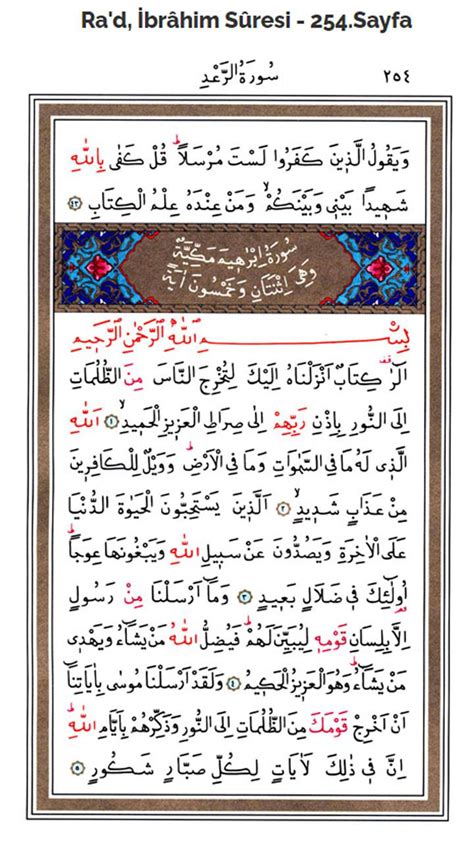 Ra'd, İbrâhim Sûresi - 254.Sayfa
سُورَةُ الرَّعْدِ ٢٥٤
وَيَقُولُ الَّذِينَ كَفَرُوا لَسْتَ مُرْسَلاًۜ قُلْ كَفٰى بِاللّٰهِ
شَهِيداً بَيْنِي وَبَيْنَكُمْۙ وَمَنْ عِنْدَهُ عِلْمُ الْكِتَابِ ﴿٤٣﴾
سُورَةُ اِبْرٰهِيمَ مَكِّيَّةٌ
وَهِيَ اِثْنَتَانِ وَخَمْسُونَ اٰيَةً
بِسْمِ اللّٰهِ الرَّحْمٰنِ الرَّحِيمِ
الٓرٰ۠ كِتَابٌ اَنْزَلْنَاهُ اِلَيْكَ لِتُخْرِجَ النَّاسَ مِنَ الظُّلُمَاتِ
اِلَى النُّورِ بِاِذْنِ رَبِّهِمْ اِلٰى صِرَاطِ الْعَزِيزِ الْحَمِيدِۙ ﴿١﴾ اَللّٰهِ
الَّذِي لَهُ مَا فِي السَّمٰوَاتِ وَمَا فِي الْاَرْضِۜ وَوَيْلٌ لِلْكَافِرِينَ
مِنْ عَذَابٍ شَدِيدٍۙ ﴿٢﴾ اَلَّذِينَ يَسْتَحِبُّونَ الْحَيٰوةَ الدُّنْيَا
عَلَى الْاٰخِرَةِ وَيَصُدُّونَ عَنْ سَبِيلِ اللّٰهِ وَيَبْغُونَهَا عِوَجاًۜ
اُو۬لٰٓئِكَ فِي ضَلَالٍ بَعِيدٍ ﴿٣﴾ وَمَٓا اَرْسَلْنَا مِنْ رَسُولٍ
اِلَّا بِلِسَانِ قَوْمِهِ لِيُبَيِّنَ لَهُمْۜ فَيُضِلُّ اللّٰهُ مَنْ يَشَٓاءُ وَيَهْدِي
مَنْ يَشَٓاءُۜ وَهُوَ الْعَزِيزُ الْحَكِيمُ ﴿٤﴾ وَلَقَدْ اَرْسَلْنَا مُوسٰى بِاٰيَاتِنَٓا
اَنْ اَخْرِجْ قَوْمَكَ مِنَ الظُّلُمَاتِ اِلَى النُّورِ وَذَكِّرْهُمْ بِاَيَّامِ اللّٰهِۜ
اِنَّ فِي ذٰلِكَ لَاٰيَاتٍ لِكُلِّ صَبَّارٍ شَكُورٍ ﴿٥﴾